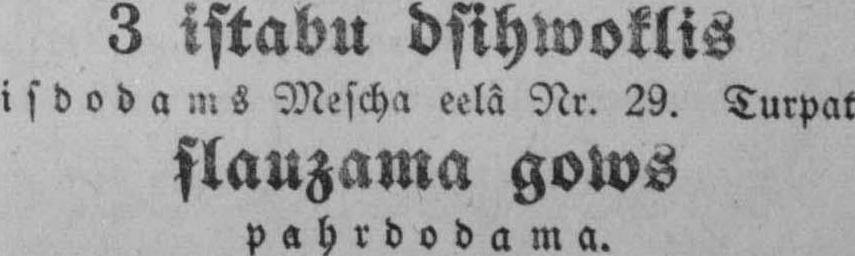 3 iſtabu dſihwoklis
iſdodams Meſcha eelâ Nr. 29. Turpat
ſlauzama gows
pahrdodama.